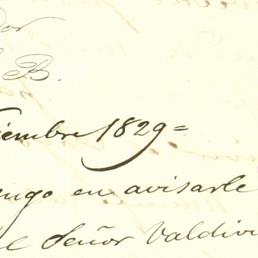 dor
B.
iembre 1829=
engo en avisarle
el Señor Valdivi